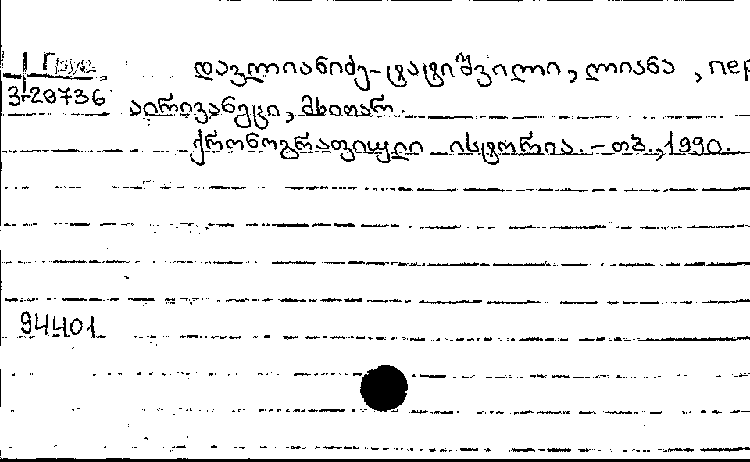 Груз დავლიანიძე-ტატიშვილი, ლიანა, пер
3-20736 აირივანეცი, მხითარ.
ქრონოგრაფიული ისტორია. – თბ., 1990.
94401